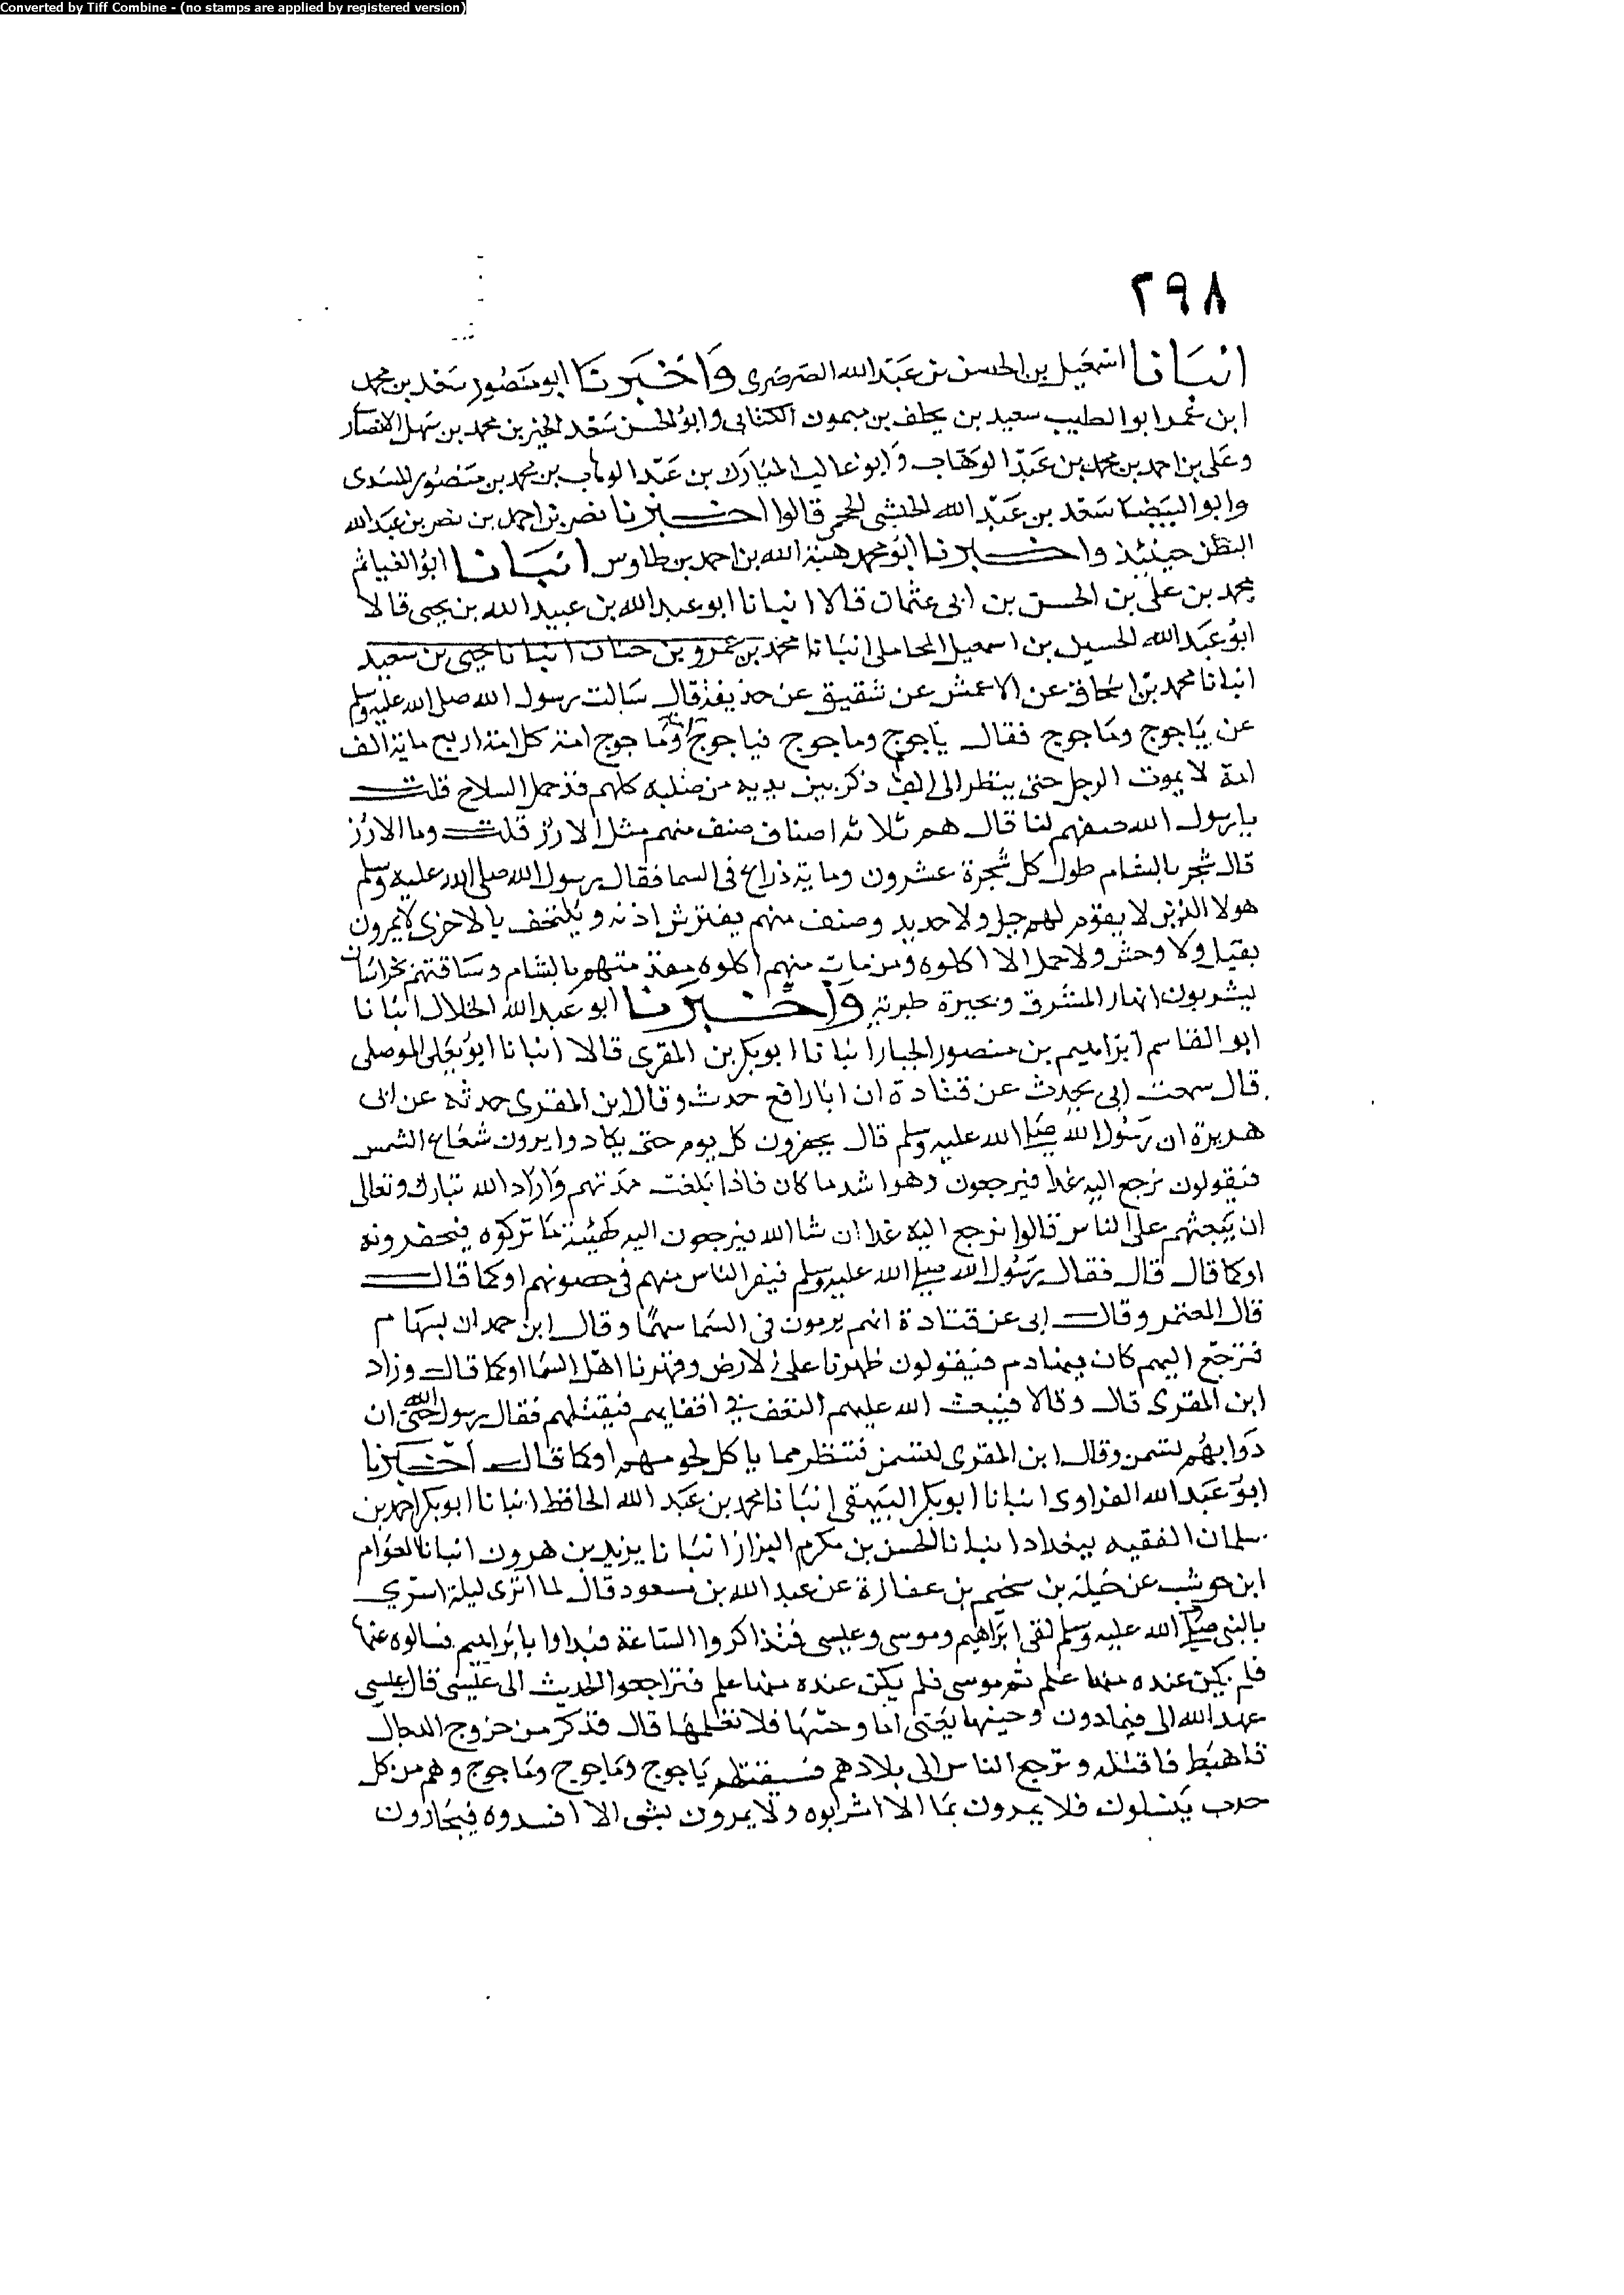 Converted by Tiff Combine - (no stamps are applied by registered version)
٢٩٨
انبانا اسمعيل بن الحسن بن عبد الله الصرصرى واخبرنا ابو منصور سعد بن محمد
ابن عمر ابو الطيب سعيد بن يخلف بن ميمون الكتابى وابو الحسن سعد الخير بن محمد بن سهل الانصار
وعلى بن احمد بن محمد بن عبد الوهاب وابو غالب المبارك بن عبد الوهاب بن محمد بن منصور المسدى
وابو البيضا سعد بن عبد الله الحبشى قالوا اخبرنا نصر بن احمد بن نصر بن عبد الله
البطر حينئذ واخبرنا ابو محمد هبة الله بن احمد بن طاوس انبانا ابو الغنائم
محمد بن على بن الحسن بن ابى عثمان قالا انبانا ابو عبد الله بن عبيد الله بن يحيى قالا
ابو عبد الله الحسين بن اسمعيل المحاملى انبانا محمد بن عمرو بن حنان انبانا يحيى بن سعيد
انبانا محمد بن اسحاق عن الاعمش عن شقيق عن حذيفة قال سالت رسول الله صلى الله عليه وسلم
عن ياجوج وماجوج فقال ياجوج وماجوج فياجوج امة وماجوج امة كل امة اربع ماية الف
امة لا يموت الرجل حتى ينظر الى الف ذكر بين يديه من صلبه كلهم قد حمل السلاح قلت
يا رسول الله صفهم لنا قال هم ثلاثه اصناف صنف منهم مثل الارز قلت وما الارز
قال شجر بالشام طول كل شجرة عشرون وماية ذراع فى السما فقال رسول الله صلى الله عليه وسلم
هولا الذين لا يقوم لهم جبل ولا حديد وصنف منهم يفترش اذنه ويلتحف بالاخرى لا يمرون
بفيل ولا وحش ولا جمل الا اكلوه ومن مات منهم اكلوه مقدمتهم بالشام وساقتهم بخراسان
يشربون انهار المشرق وبحيرة طبرية واخبرنا ابو عبد الله الخلال انبانا
ابو القاسم ابراهيم بن منصور الجبار انبانا ابو بكر بن المقرى قالا انبانا ابو يعلى الموصلى
قال سمعت ابى يحدث عن قتادة ان ابا رافع حدث وقال ابن المقرى حدثه عن ابى
هريرة ان رسول الله صلى الله عليه وسلم قال يحفرون كل يوم حتى يكادوا يرون شعاع الشمس
فيقولون نرجع اليه غدا فيرجعون وهو اشد ما كان فاذا بلغت مدتهم واراد الله تبارك وتعالى
ان يبعثهم على الناس قالوا نرجع اليه غدا ان شا الله فيرجعون اليه كهيئة ما تركوه فيحفرونه
او كما قال قال فقال رسول الله صلى الله عليه وسلم فيفر الناس منهم فى حصونهم او كما قال
قال المعتمر وقال ابى عن قتادة انهم يرمون فى السما سهما وقال ابن حمدان بسهام
فترجع اليهم كان بهنادم فيقولون ظهرنا على الارض وقهرنا اهل السما او كما قال وزاد
ابن المقرى قال وقالا فيبعث الله عليهم النغف فى اقفايهم فيقتلهم فقال رسول الله حتى ان
دوابهم لتسمن وقال ابن المقرى لتسمن فتنظر مما ياكل لحومهم او كما قال اخبرنا
ابو عبد الله الفراوى انبانا ابو بكر البيهقى انبانا محمد بن عبد الله الحافظ انبانا ابو بكر احمد بن
سلمان الفقيه ببغداد انبانا الحسن بن مكرم البزاز انبانا يزيد بن هرون انبانا العوام
ابن حوشب عن جبلة بن سحيم بن عفازة عن عبد الله بن مسعود قال لما اسرى ليلة اسري
بالنبى صلى الله عليه وسلم لقى ابراهيم وموسى وعيسى فتذاكروا الساعة فبداوا بابراهيم فسالوه عنها
فلم يكن عنده منها علم ثم موسى فلم يكن عنده منها علم فتراجعوا الحديث الى عيسى قال عيسى
عهد الله الى فيمادون وجبتها فلا نعلمها قال فذكر من خروج الدجال
فاهبط فاقتله وترجع الناس الى بلادهم فتستقبلهم ياجوج وماجوج وماجوج وهم من كل
حدب ينسلون فلا يمرون بما الا اشربوه ولا يمرون بشى الا افسدوه فيجازون